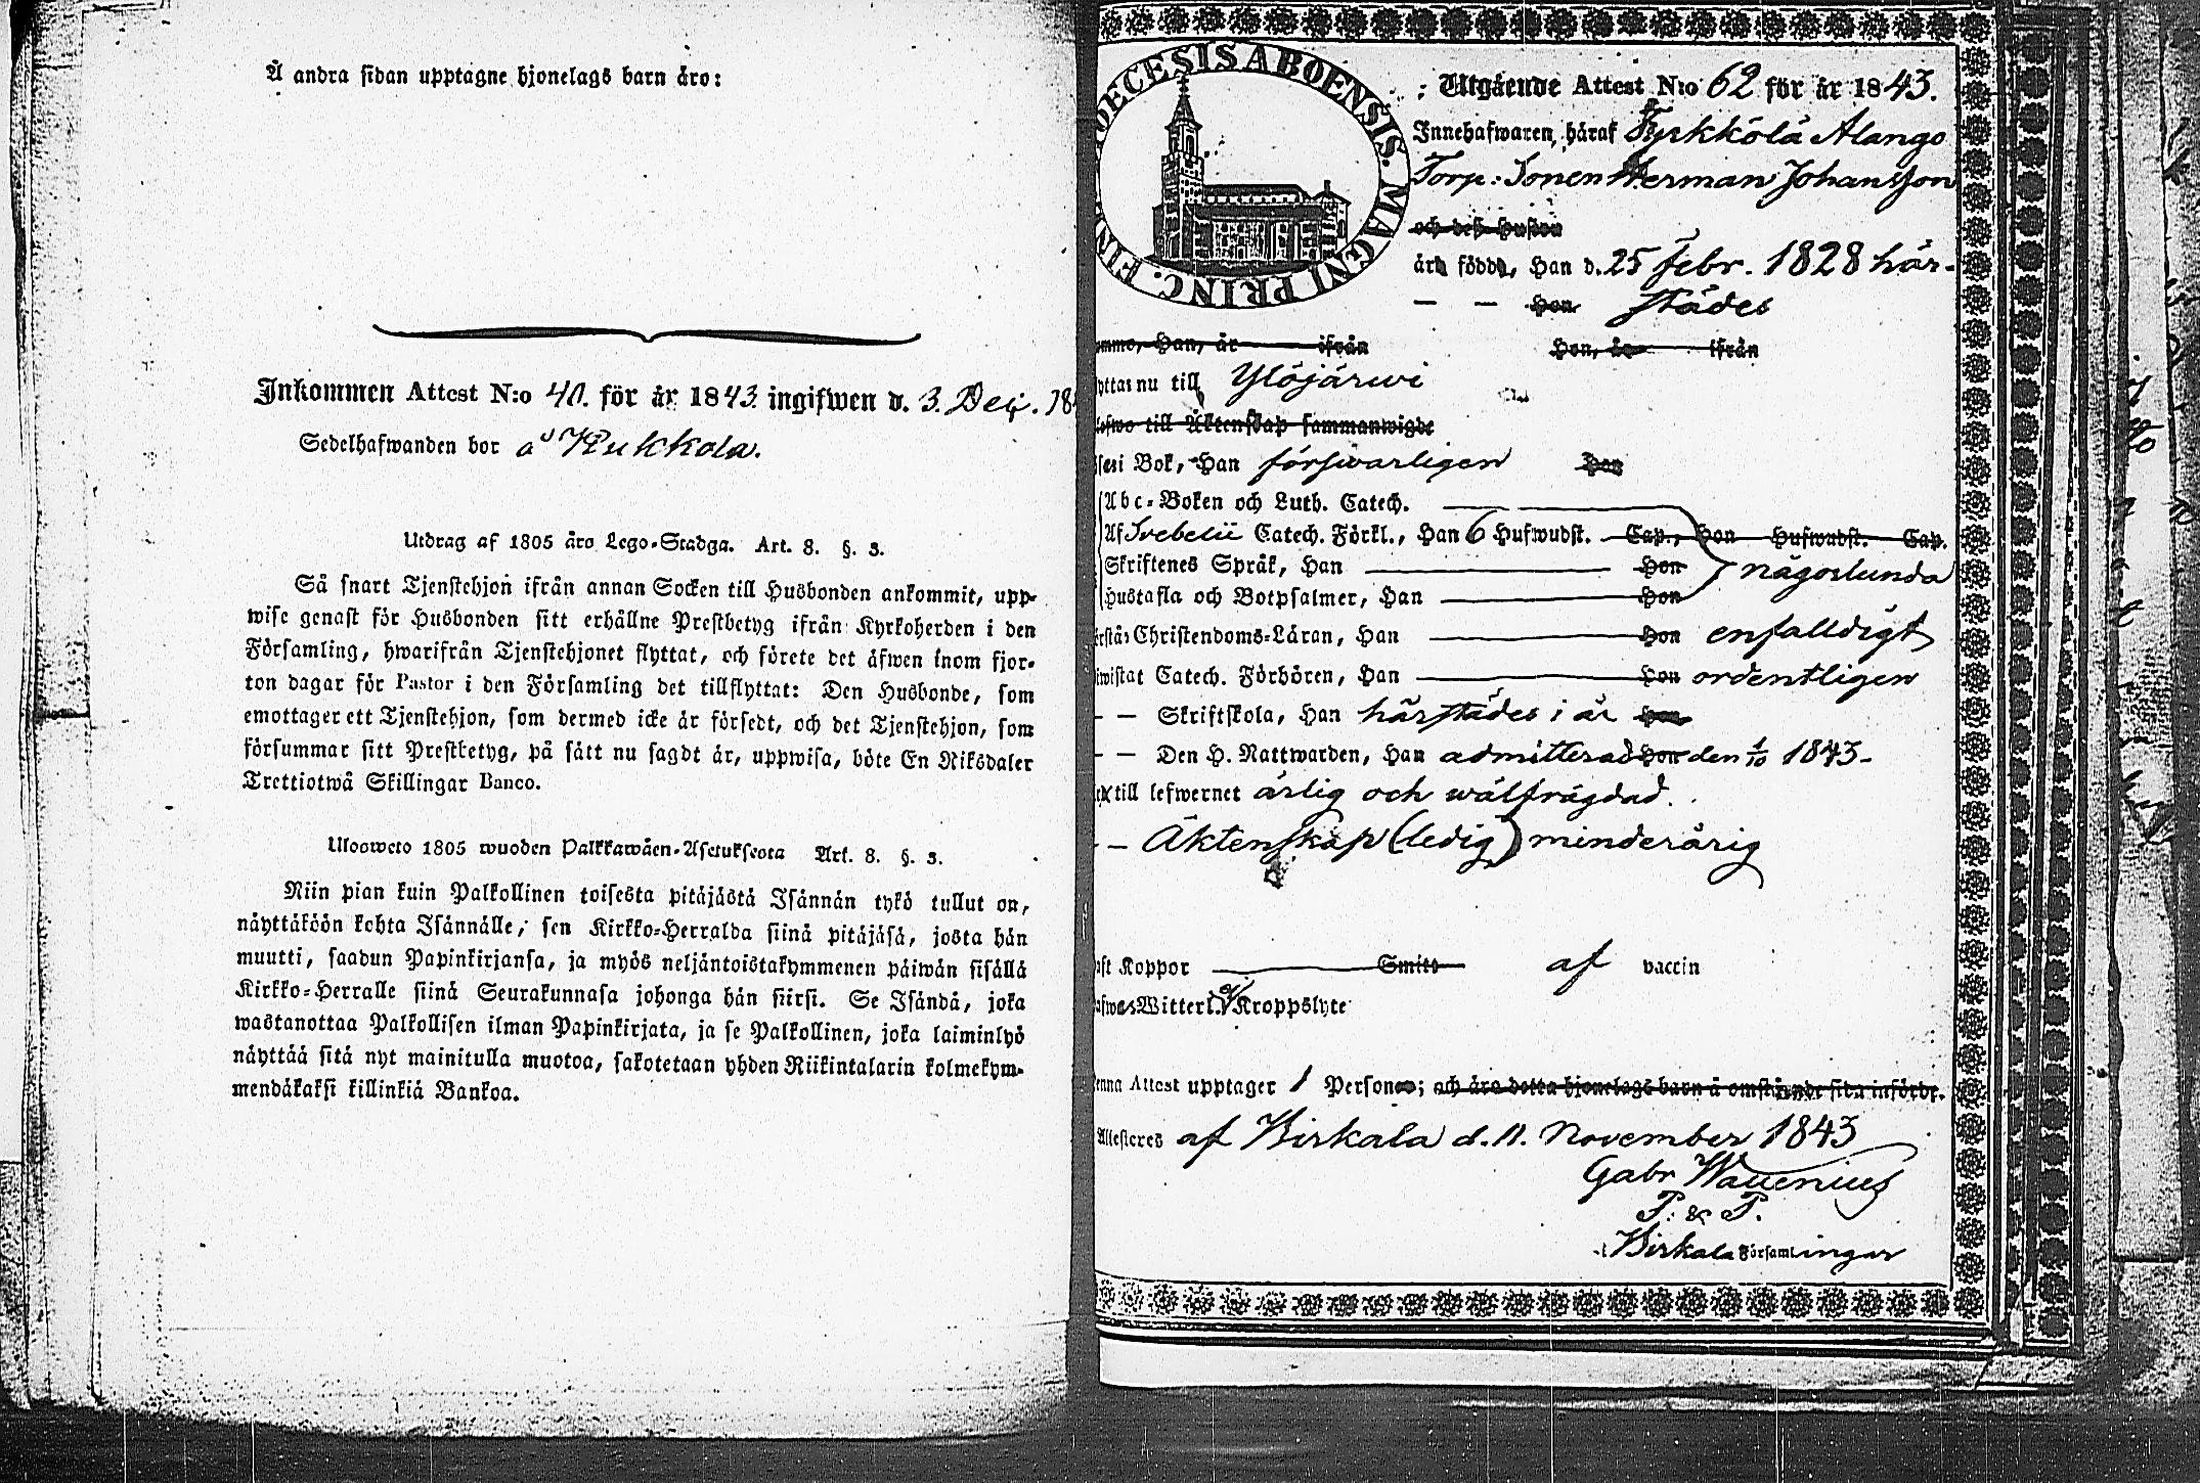 Å andra sidan upptagne hjonelags barn äro:
Inkommen Attest N:o 40. för år 1843. ingifwen d. 3. Dec. 18
Sedelhafwanden bor å Kukkola.
Utdrag af 1805 års Lego-Stadga. Art. 8. §. 3.
Så snart Tjenstehjon ifrån annan Socken till Husbonden ankommit, upp-
wise genast för Husbonden sitt erhållne Prestbetyg ifrån Kyrkoherden i den
Församling, hwarifrån Tjenstehjonet flyttat, och förete det äfwen inom fjor-
ton dagar för Pastor i den Församling det tillflyttat: Den Husbonde, som
emottager ett Tjenstehjon, som dermed icke är försedt, och det Tjenstehjon, som
försummar sitt Prestbetyg, på sätt nu sagdt är, uppwisa, böte En Riksdaler
Trettiotwå Skillingar Banco.
Uloosweto 1805 wuoden Palkkawäen-Asetuksesta Art. 8. §. 3.
Niin pian kuin Palkollinen toisesta pitäjästä Isännän tykö tullut on,
näyttäköön kohta Isännälle, sen Kirkko-Herralda siinä pitäjäsä, josta hän
muutti, saadun Papinkirjansa, ja myös neljäntoistakymmenen päiwän sisällä
Kirkko-Herralle siinä Seurakunnasa johonga hän siirsi. Se Isändä, joka
wastanottaa Palkollisen ilman Papinkirjata, ja se Palkollinen, joka laiminlyö
näyttää sitä nyt mainitulla muotoa, sakotetaan yhden Riikintalarin kolmekym-
mendäkaksi killinkiä Bankoa.
OECESIS ABOENSIS. MAGNI PRINC. FIN
Utgående Attest N:o 62 för år 1843.
Innehafwaren häraf Tyrkkölä Alango
Torp: Sonen Herman Johansson
och dess Hustru
äro födde, Han d. 25 Febr. 1828 här-
— — Hon städes
ommo, Han, år ifrån Hon, år ifrån
yttas nu till Ylöjärwi
lefwo till Äktenskap sammanwigde
äsa i Bok, Han förswarligen Hon
Abc-Boken och Luth. Catech.
Af Svebelii Catech. Förkl., Han 6 Hufwudst. Cap., Hon Hufwudst. Cap.
Skriftenes Språk, Han Hon någorlunda
Hustafla och Botpsalmer, Han Hon
örstår Christendoms-Läran, Han Hon enfalldigt
iwistat Catech. Förhören, Han Hon ordentligen
— — Skriftskola, Han härstädes i år Hon
— — Den H. Nattwarden, Han admitterad Hon den 1/10 1843-
till lefwernet ärlig och wälfrägdad.
— Äktenskap (ledig) minderårig
aft Koppor Smitto af vaccin
afwa Witterl. ej Kroppslyte
enna Attest upptager 1 Person; och äro detta hjonelags barn å omstående sida införde.
Attesteres af Birkala d. 11. November 1843
Gabr Wallenius
P. & P.
i Birkala Församlingar